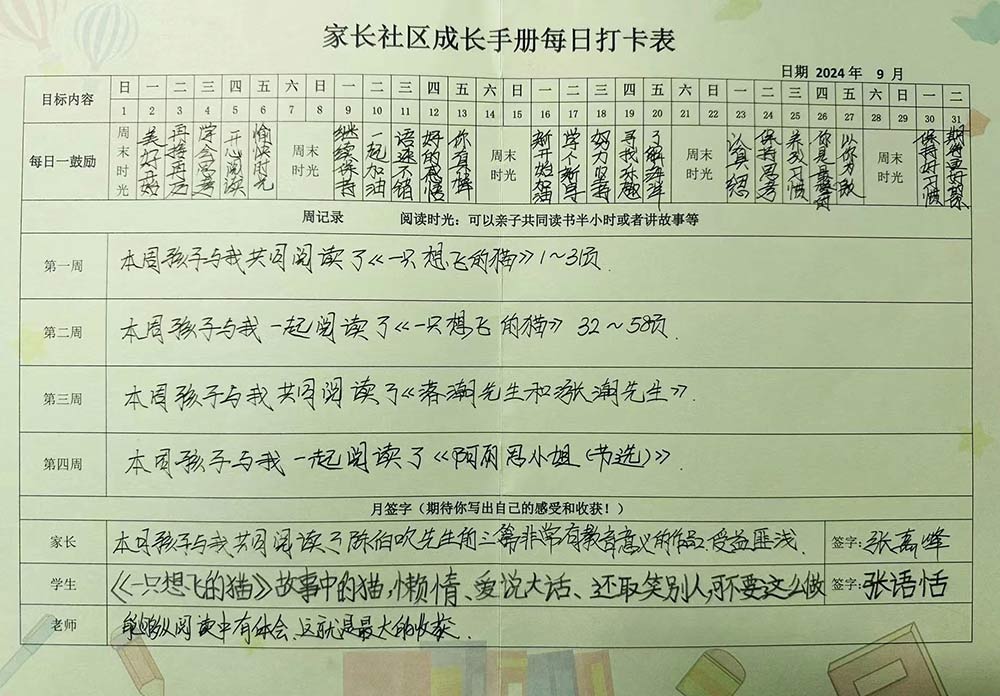 家长社区成长手册每日打卡表
日期 2024年 9 月
目标内容 日 一 二 三 四 五 六 日 一 二 三 四 五 六 日 一 二 三 四 五 六 日 一 二 三 四 五 六 日 一 二
1 2 3 4 5 6 7 8 9 10 11 12 13 14 15 16 17 18 19 20 21 22 23 24 25 26 27 28 29 30 31
每日一鼓励 周末时光 美好开始 再接再厉 学会思考 开心阅读 愉快时光 周末时光 继续保持 一起加油 语速不错 好的感悟 你有最棒 周末时光 新开始加油 努力坚持 寻找乐趣 周末时光 认真 保持思考 养成习惯 你是最 以你为 周末时光 保持好习惯
周记录 阅读时光：可以亲子共同读书半小时或者讲故事等
第一周 本周孩子与我共同阅读了《一只想飞的猫》1～3页.
第二周 本周孩子与我一起阅读了《一只想飞的猫》32～58页.
第三周 本周孩子与我共同阅读了《落潮先生和涨潮先生》.
第四周 本周孩子与我一起阅读了《阿丽思小姐（节选）》.
月签字（期待你写出自己的感受和收获！）
家长 本月孩子与我共同阅读了陈伯吹先生的三篇非常有教育意义的作品.受益匪浅. 签字：张高峰
学生 《一只想飞的猫》故事中的猫,懒惰、爱说大话、还取笑别人,可不要这么做 签字：张语恬
老师 能够从阅读中有体会、这就是最大的收获.